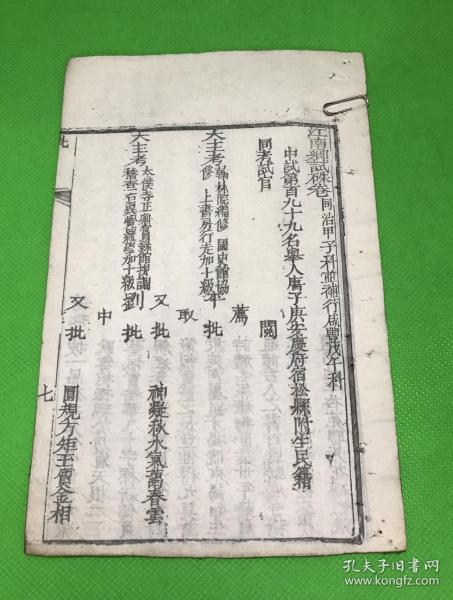 江南鄉試硃卷同治甲子科並補行咸豐戊午科
中試第百九十九名舉人唐子庚安慶府宿松縣附生民籍
同考試官
閱
薦
大主考翰林院編修 國史館協修 上書房行走加十級平 批
取
又批 神凝秋水氣藹春雲
大主考太僕寺正卿
稽查右翼 加十級劉 批
中
又批 圓規方矩玉質金相
七
批
孔夫子旧书网
https://book.kongfz.com